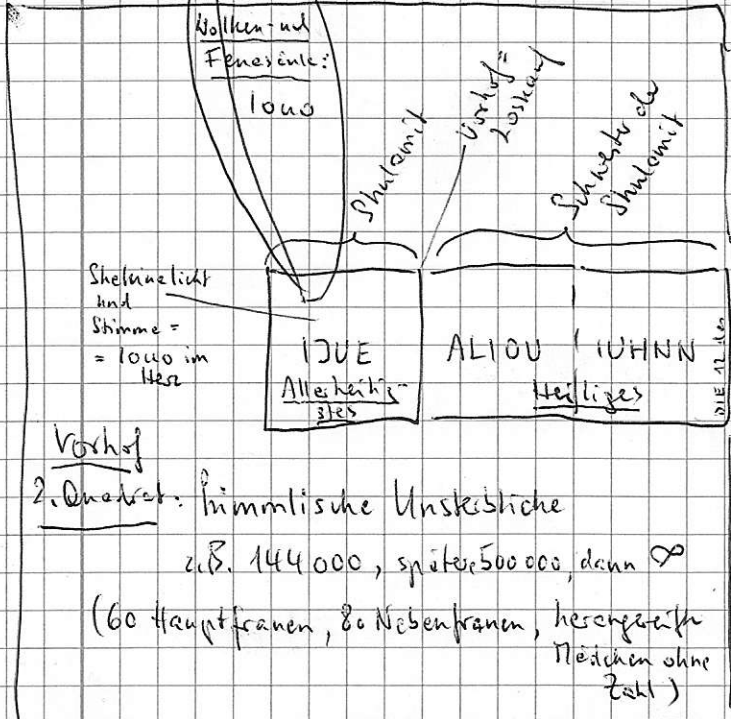 Wolken- und
Feuersäule:
IOUO
Shulamit
Vorhof =
Loskauf
Schwester der
Shulamit
Shekinalicht
und
Stimme =
= IOUO im
Herz
IJUE
Allerheilig-
stes
ALIOU IUHNN
Heiliges
DIE 12 des
Vorhof
2. Quadrat: himmlische Unsterbliche
z.B. 144 000, später 500 000, dann ∞
(60 Hauptfrauen, 80 Nebenfrauen, herangereifte
Mädchen ohne
Zahl)